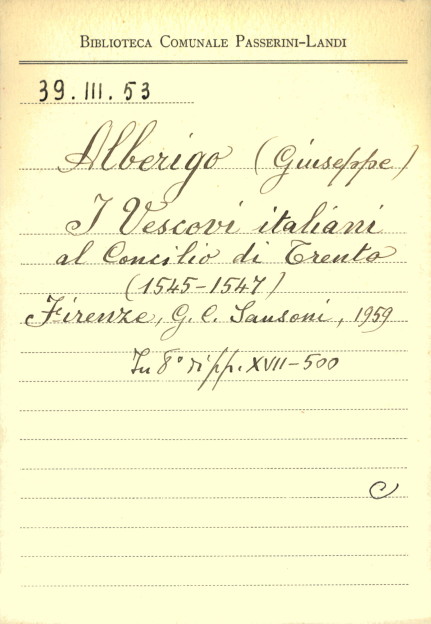 BIBLIOTECA COMUNALE PASSERINI-LANDI
39.III.53
Alberigo (Giuseppe)
I Vescovi italiani
al Concilio di Trento
(1545-1547)
Firenze, G. C. Sansoni, 1959
In 8° di pp. XVII-500
C